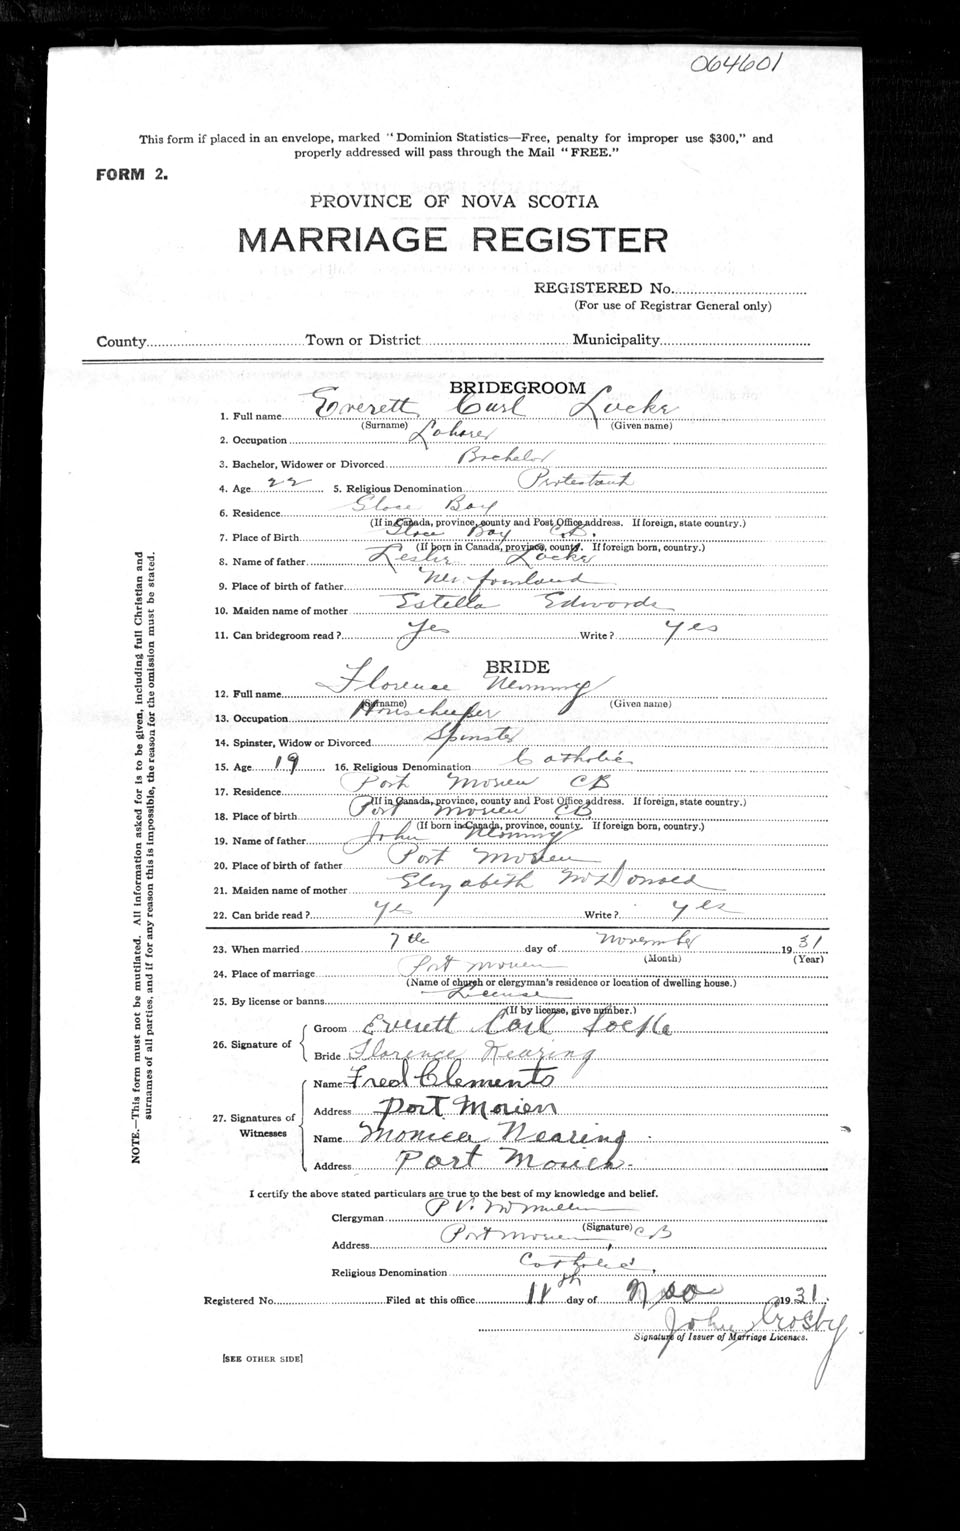 064601
This form if placed in an envelope, marked "Dominion Statistics—Free, penalty for improper use $300," and
properly addressed will pass through the Mail "FREE."
FORM 2.
PROVINCE OF NOVA SCOTIA
MARRIAGE REGISTER
REGISTERED No.
(For use of Registrar General only)
County Town or District Municipality
BRIDEGROOM
1. Full name Everett Carl Locke
(Surname) (Given name)
2. Occupation Laborer
3. Bachelor, Widower or Divorced Bachelor
4. Age 22 5. Religious Denomination Protestant
6. Residence Glace Bay
(If in Canada, province, county and Post Office address. If foreign, state country.)
7. Place of Birth Glace Bay C.B.
(If born in Canada, province, county. If foreign born, country.)
8. Name of father Leslie Locke
9. Place of birth of father Newfomland
10. Maiden name of mother Estella Edwords
11. Can bridegroom read? Yes Write? Yes
BRIDE
12. Full name Florence
(Surname) (Given name)
13. Occupation Housekeeper
14. Spinster, Widow or Divorced Spinster
15. Age 19 16. Religious Denomination Catholic
17. Residence Port Morien CB
(If in Canada, province, county and Post Office address. If foreign, state country.)
18. Place of birth Port Morien CB
(If born in Canada, province, county. If foreign born, country.)
19. Name of father John
20. Place of birth of father Port Morien
21. Maiden name of mother Elizabeth McDonald
22. Can bride read? Yes Write? Yes
23. When married 7th day of November 1931
(Month) (Year)
24. Place of marriage Port Morien
(Name of church or clergyman's residence or location of dwelling house.)
25. By license or banns License
(If by license, give number.)
26. Signature of
Groom Everett Carl Locke
Bride Florence Nearing
27. Signatures of Witnesses
Name Fred Clements
Address Port Morien
Name Monica Nearing
Address Port Morien
I certify the above stated particulars are true to the best of my knowledge and belief.
Clergyman P V. McMullin
(Signature)
Address Port Morien, CB
Religious Denomination Catholic
Registered No. Filed at this office 11th day of Nov 1931.
John Crosby
Signature of Issuer of Marriage Licenses.
[SEE OTHER SIDE]
NOTE.—This form must not be mutilated. All information asked for is to be given, including full Christian and
surnames of all parties, and if for any reason this is impossible, the reason for the omission must be stated.